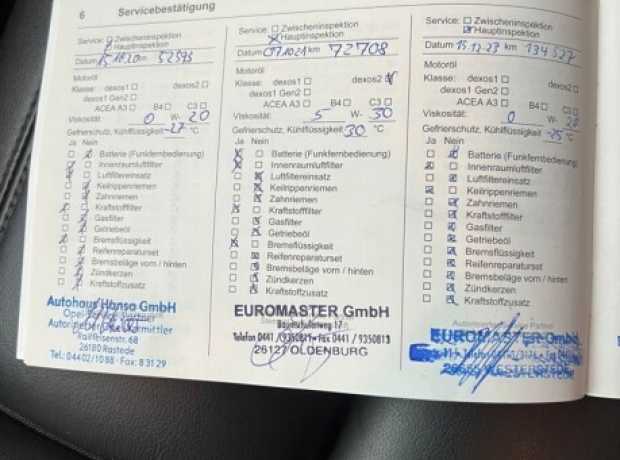 6 Servicebestätigung
Service: Zwischeninspektion
Hauptinspektion
Datum km 52595
Motoröl
Klasse: dexos1 dexos2
dexos1 Gen2
ACEA A3 B4 C3
Viskosität: 0 W- 20
Gefrierschutz, Kühlflüssigkeit -27 °C
Ja Nein
Batterie (Funkfernbedienung)
Innenraumluftfilter
Luftfiltereinsatz
Keilrippenriemen
Zahnriemen
Kraftstofffilter
Gasfilter
Getriebeöl
Bremsflüssigkeit
Reifenreparaturset
Bremsbeläge vorn / hinten
Zündkerzen
Kraftstoffzusatz
Autohaus Hansa GmbH
Opel Service Partner
Autorisierter Vermittler
Raiffeisenstr. 68
26180 Rastede
Tel.: 04402/1088 · Fax: 83129
Service: Zwischeninspektion
Hauptinspektion
Datum km 72708
Motoröl
Klasse: dexos1 dexos2
dexos1 Gen2
ACEA A3 B4 C3
Viskosität: 5 W- 30
Gefrierschutz, Kühlflüssigkeit 30 °C
Ja Nein
Batterie (Funkfernbedienung)
Innenraumluftfilter
Luftfiltereinsatz
Keilrippenriemen
Zahnriemen
Kraftstofffilter
Gasfilter
Getriebeöl
Bremsflüssigkeit
Reifenreparaturset
Bremsbeläge vorn / hinten
Zündkerzen
Kraftstoffzusatz
EUROMASTER GmbH
17
Telefon 0441 /9350811 · Fax 0441 / 9350813
26127 OLDENBURG
Service: Zwischeninspektion
Hauptinspektion
Datum 15.12.23 km 134527
Motoröl
Klasse: dexos1 dexos2
dexos1 Gen2
ACEA A3 B4 C3
Viskosität: 0 W- 20
Gefrierschutz, Kühlflüssigkeit -25 °C
Ja Nein
Batterie (Funkfernbedienung)
Innenraumluftfilter
Luftfiltereinsatz
Keilrippenriemen
Zahnriemen
Kraftstofffilter
Gasfilter
Getriebeöl
Bremsflüssigkeit
Reifenreparaturset
Bremsbeläge vorn / hinten
Zündkerzen
Kraftstoffzusatz
Partner
EUROMASTER GmbH
26655 WESTERSTEDE